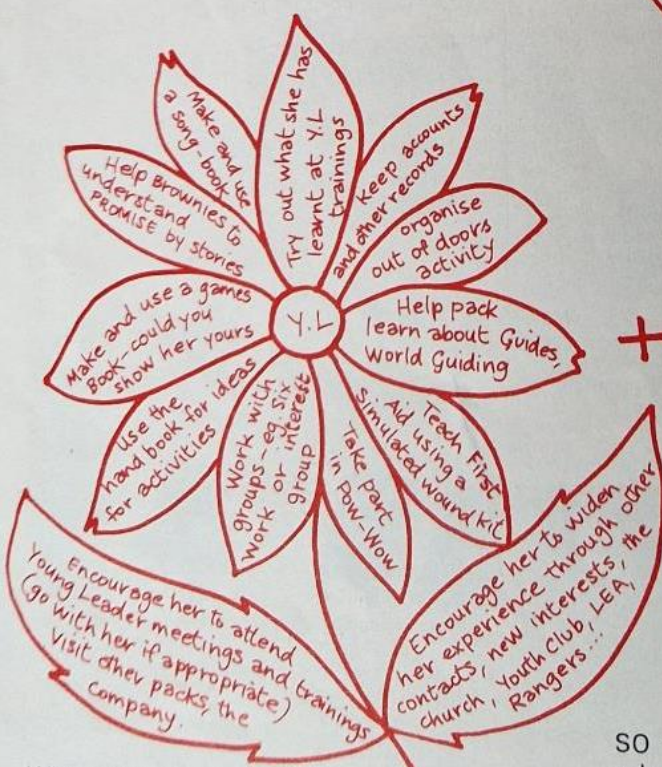 Try out what she has
learnt at Y.L
trainings
Keep accounts
and other records
organise
out of doors
activity
Help pack
learn about Guides,
World Guiding
Teach First
Aid using a
simulated wound kit
Take part
in Pow-Wow
Work with
groups-eg six
work or interest
group
Use the
hand book for ideas
for activities
Make and use a games
Book-could you
show her yours
Help Brownies to
understand
PROMISE by stories
Make and use
a song-book
Y.L
+
Encourage her to attend
Young Leader meetings and trainings
(go with her if appropriate)
Visit other packs, the
company.
Encourage her to widen
her experience through other
contacts, new interests, the
church, Youth Club, LEA,
Rangers...
SO